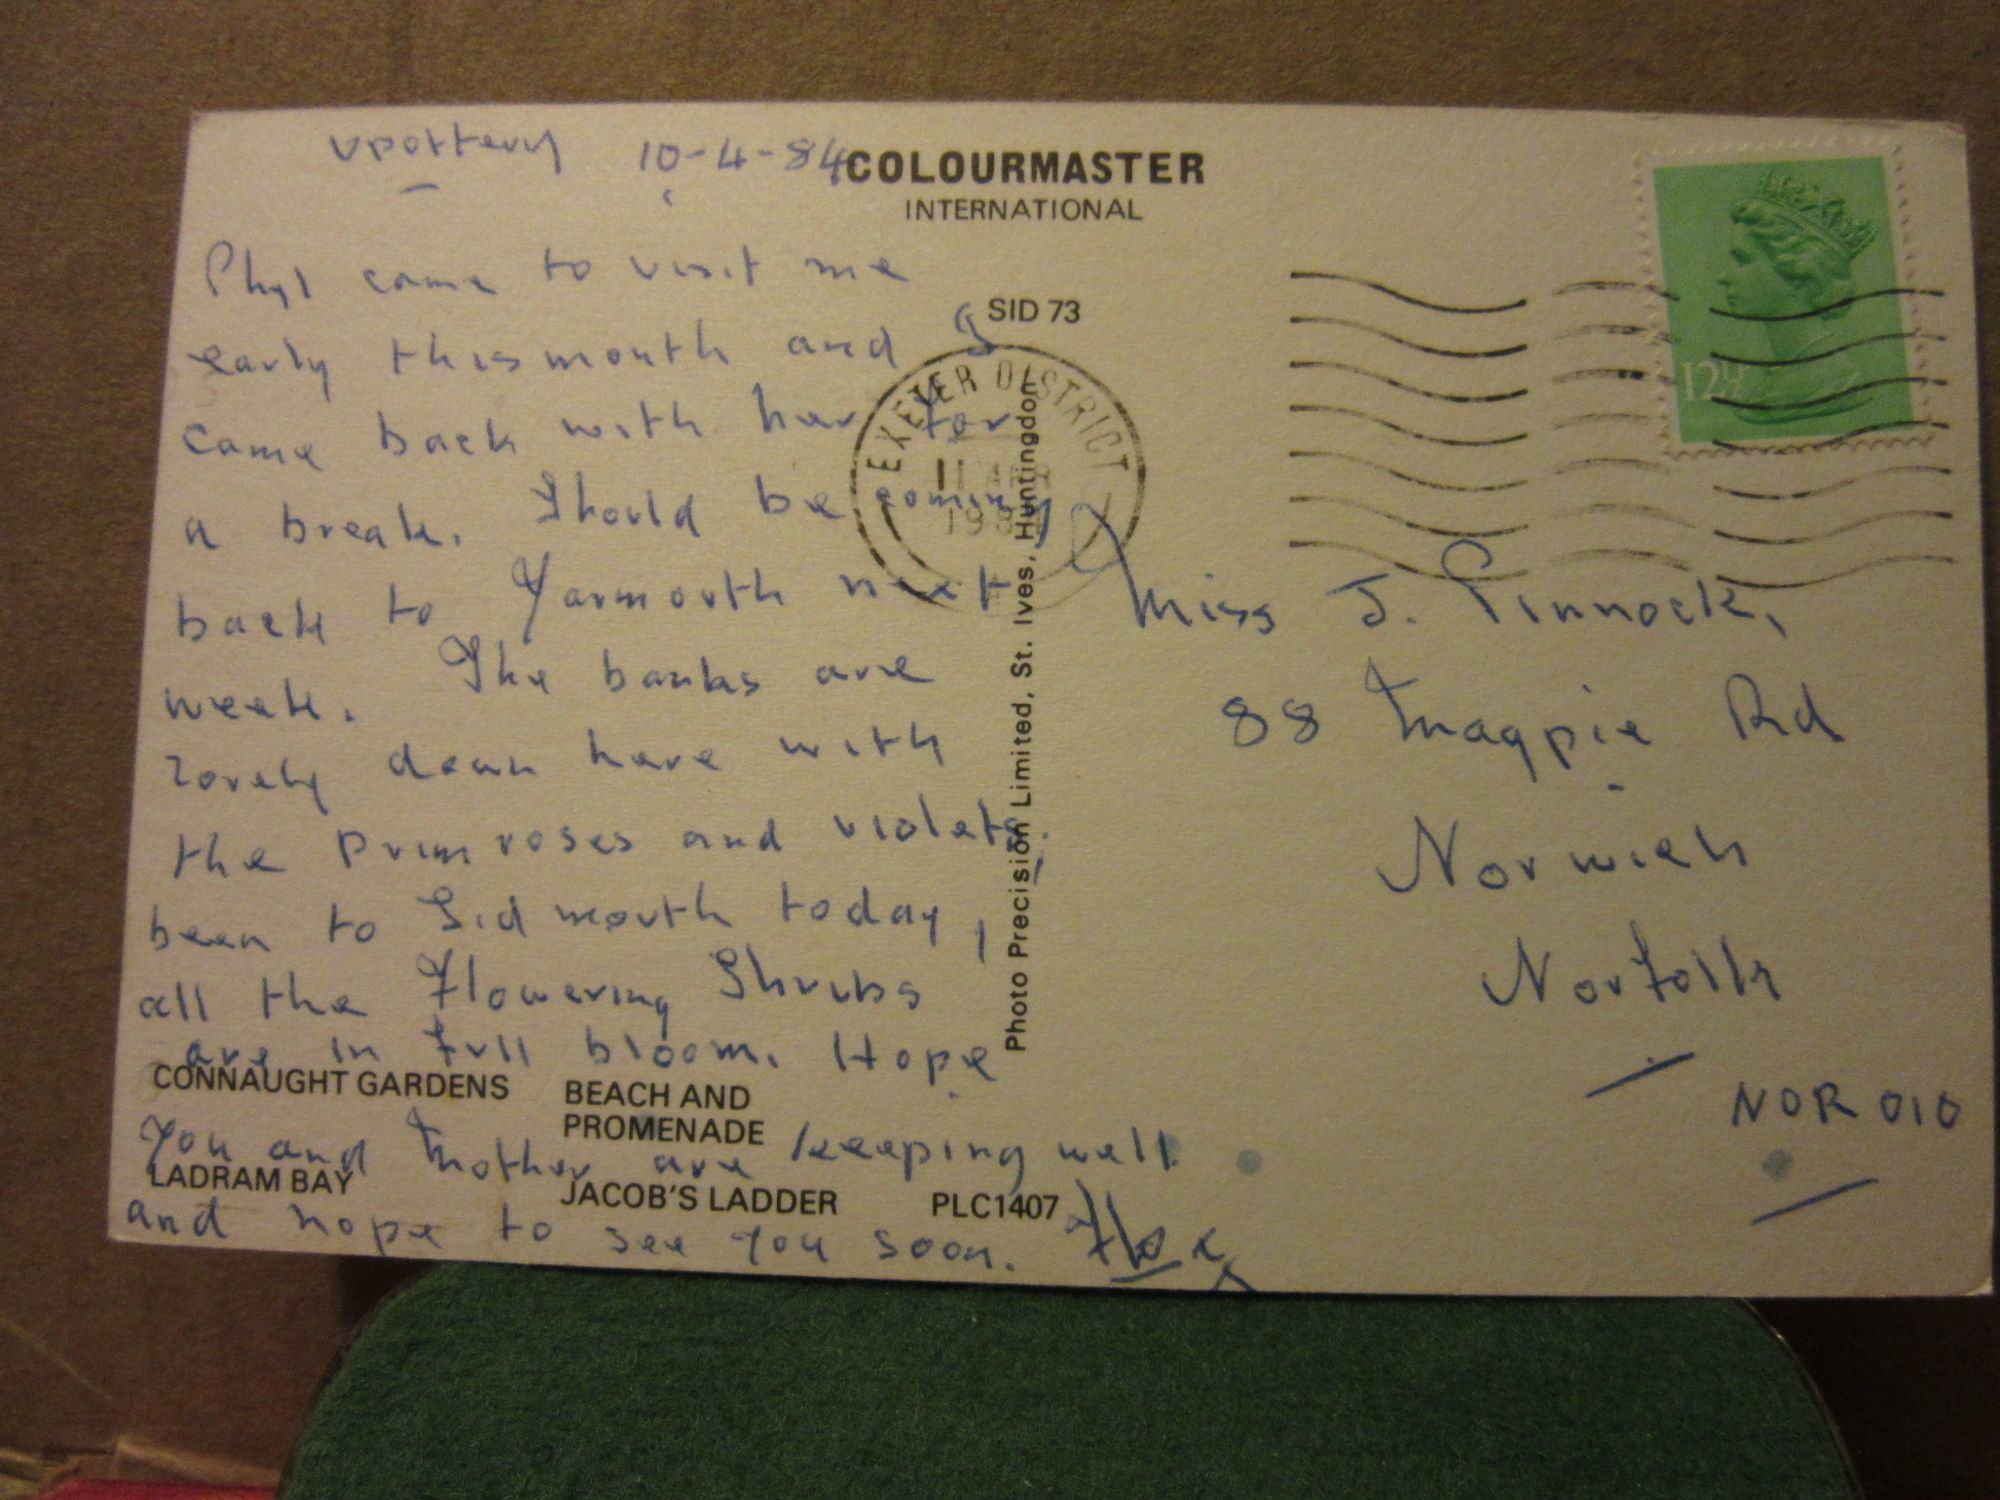 Upottery 10-4-84
COLOURMASTER
INTERNATIONAL
Phyl came to visit me
early this month and I
came back with her for
a break. Should be coming
back to Yarmouth next
week. The banks are
lovely down here with
the primroses and violets,
been to Sidmouth today,
all the Flowering Shrubs
are in full bloom. Hope
you and Mother are keeping well
and hope to see you soon.
CONNAUGHT GARDENS
BEACH AND
PROMENADE
LADRAM BAY
JACOB'S LADDER
PLC1407
SID 73
Photo Precision Limited, St. Ives, Huntingdon
EXETER DISTRICT
11 APR
1984
12½P
Miss J. Pinnock,
88 Magpie Rd
Norwich
Norfolk
NOR 010